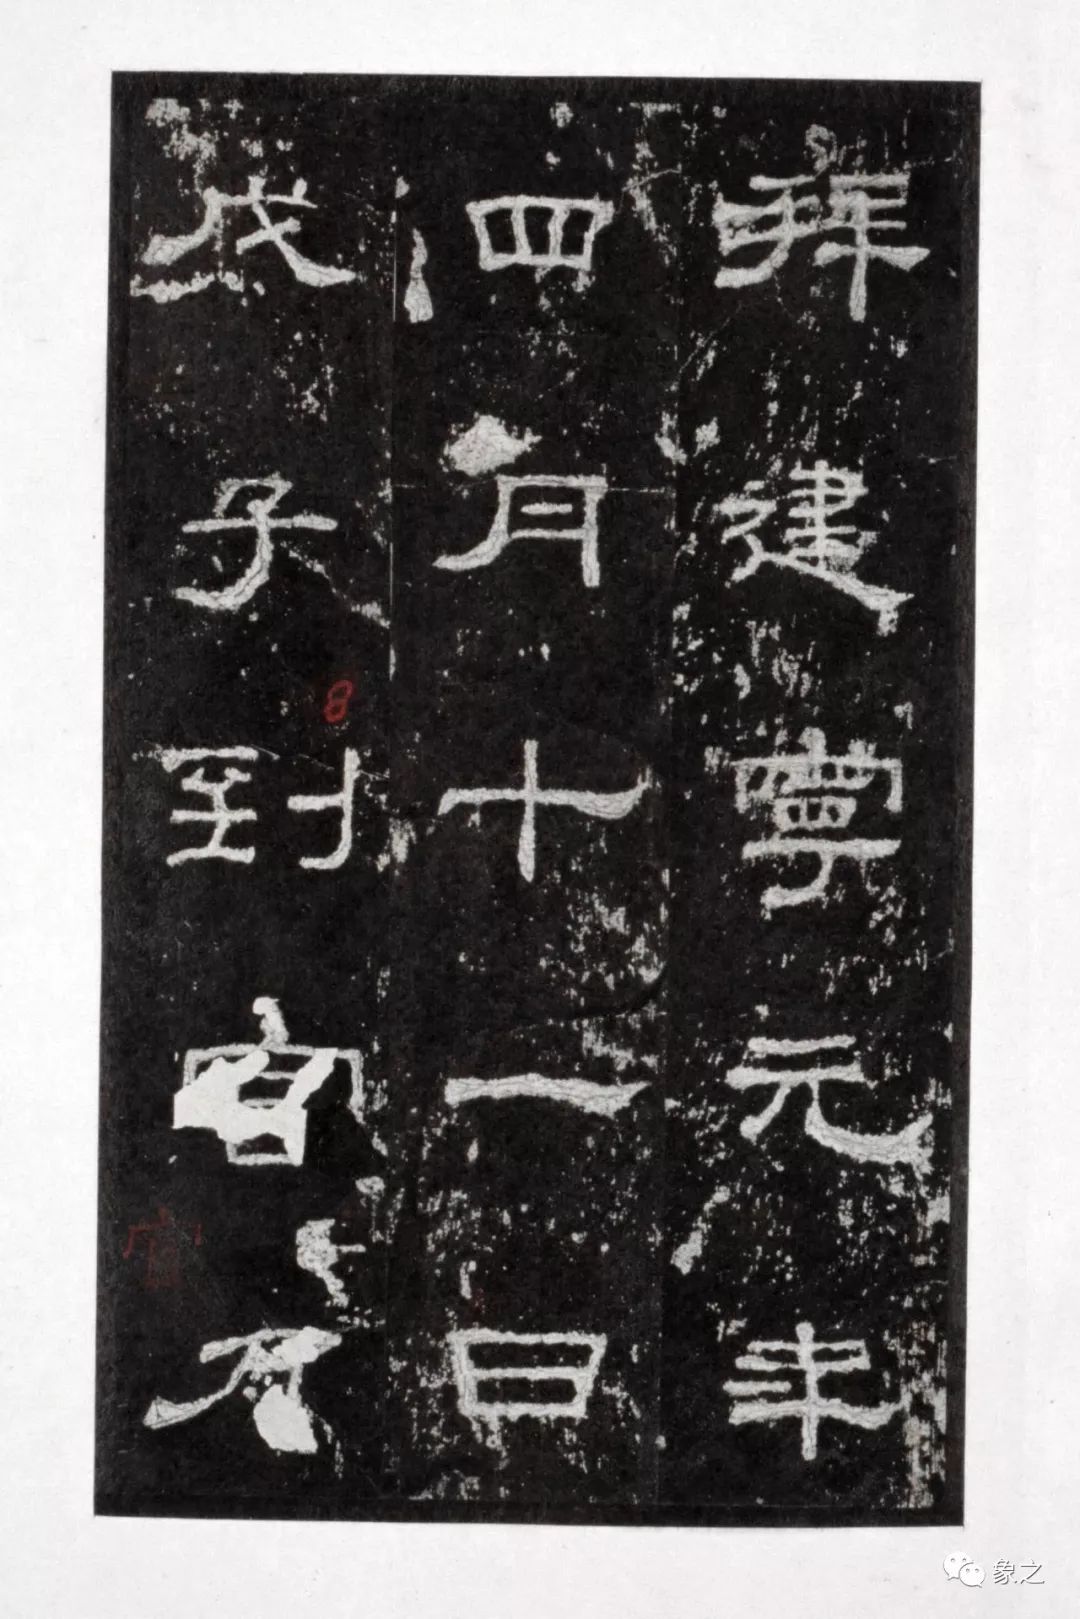 拜建寧元年
四月十一日
戊子到官乃
8
官
象之